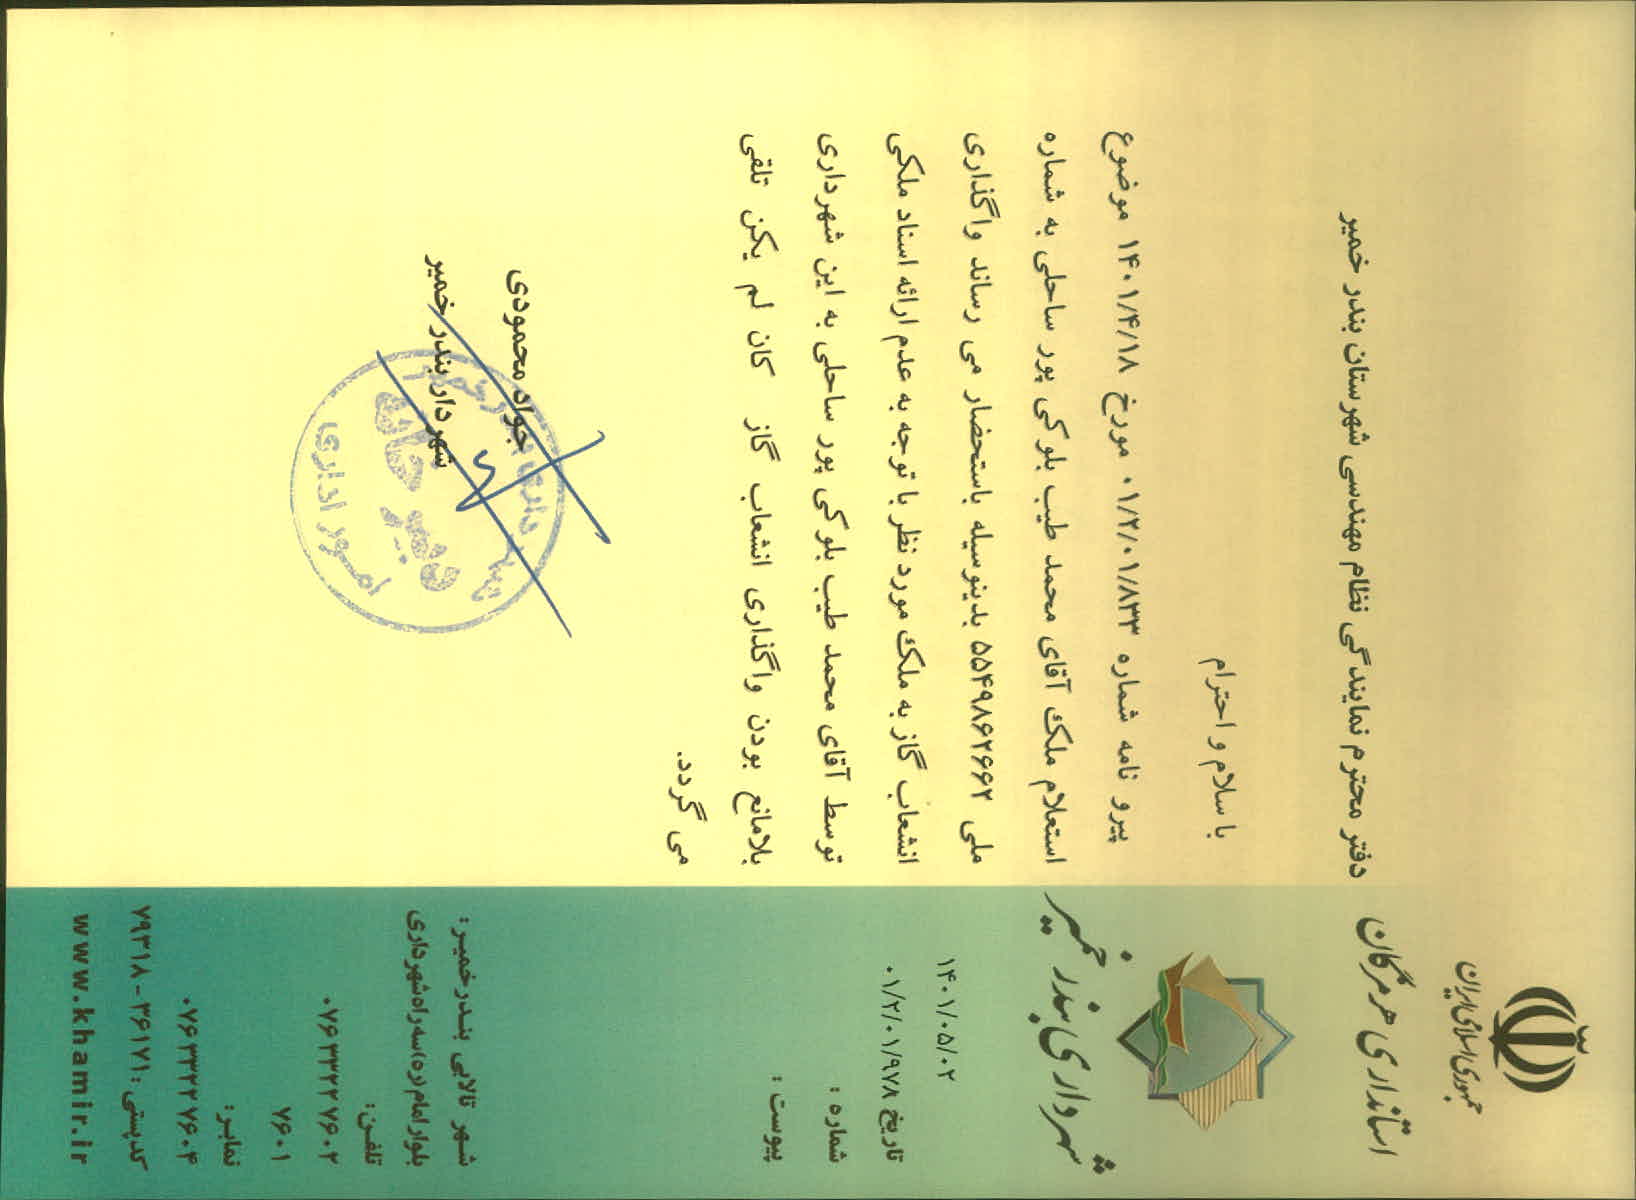 جمهوری اسلامی ایران
استانداری هرمزگان
شهرداری بندر خمیر
۱۴۰۱/۰۵/۰۲
تاریخ ۰۱/۲/۰۱/۹۷۸
شماره :
پیوست :
دفتر محترم نمایندگی نظام مهندسی شهرستان بندر خمیر
با سلام و احترام
پیرو نامه شماره ۰۱/۲/۰۱/۸۳۳ مورخ ۱۴۰۱/۴/۱۸ موضوع
استعلام ملک آقای محمد طیب بلوکی پور ساحلی به شماره
ملی ۵۵۴۹۸۶۲۶۶۲ بدینوسیله باستحضار می رساند واگذاری
انشعاب گاز به ملک مورد نظر با توجه به عدم ارائه اسناد ملکی
توسط آقای محمد طیب بلوکی پور ساحلی به این شهرداری
بلامانع بودن واگذاری انشعاب گاز کان لم یکن تلقی
می گردد.
جواد محمودی
شهردار بندر خمیر
دبیر خانه
امور اداری
شهر تالابی بندر خمیر:
بلوار امام(ره)سه راه شهرداری
تلفن:
۰۷۶۳۳۲۲۷۶۰۲
۷۶۰۱
نمابر:
۰۷۶۳۳۲۲۷۶۰۴
کدپستی: ۳۶۱۷۱ - ۷۹۳۱۸
www.khamir.ir